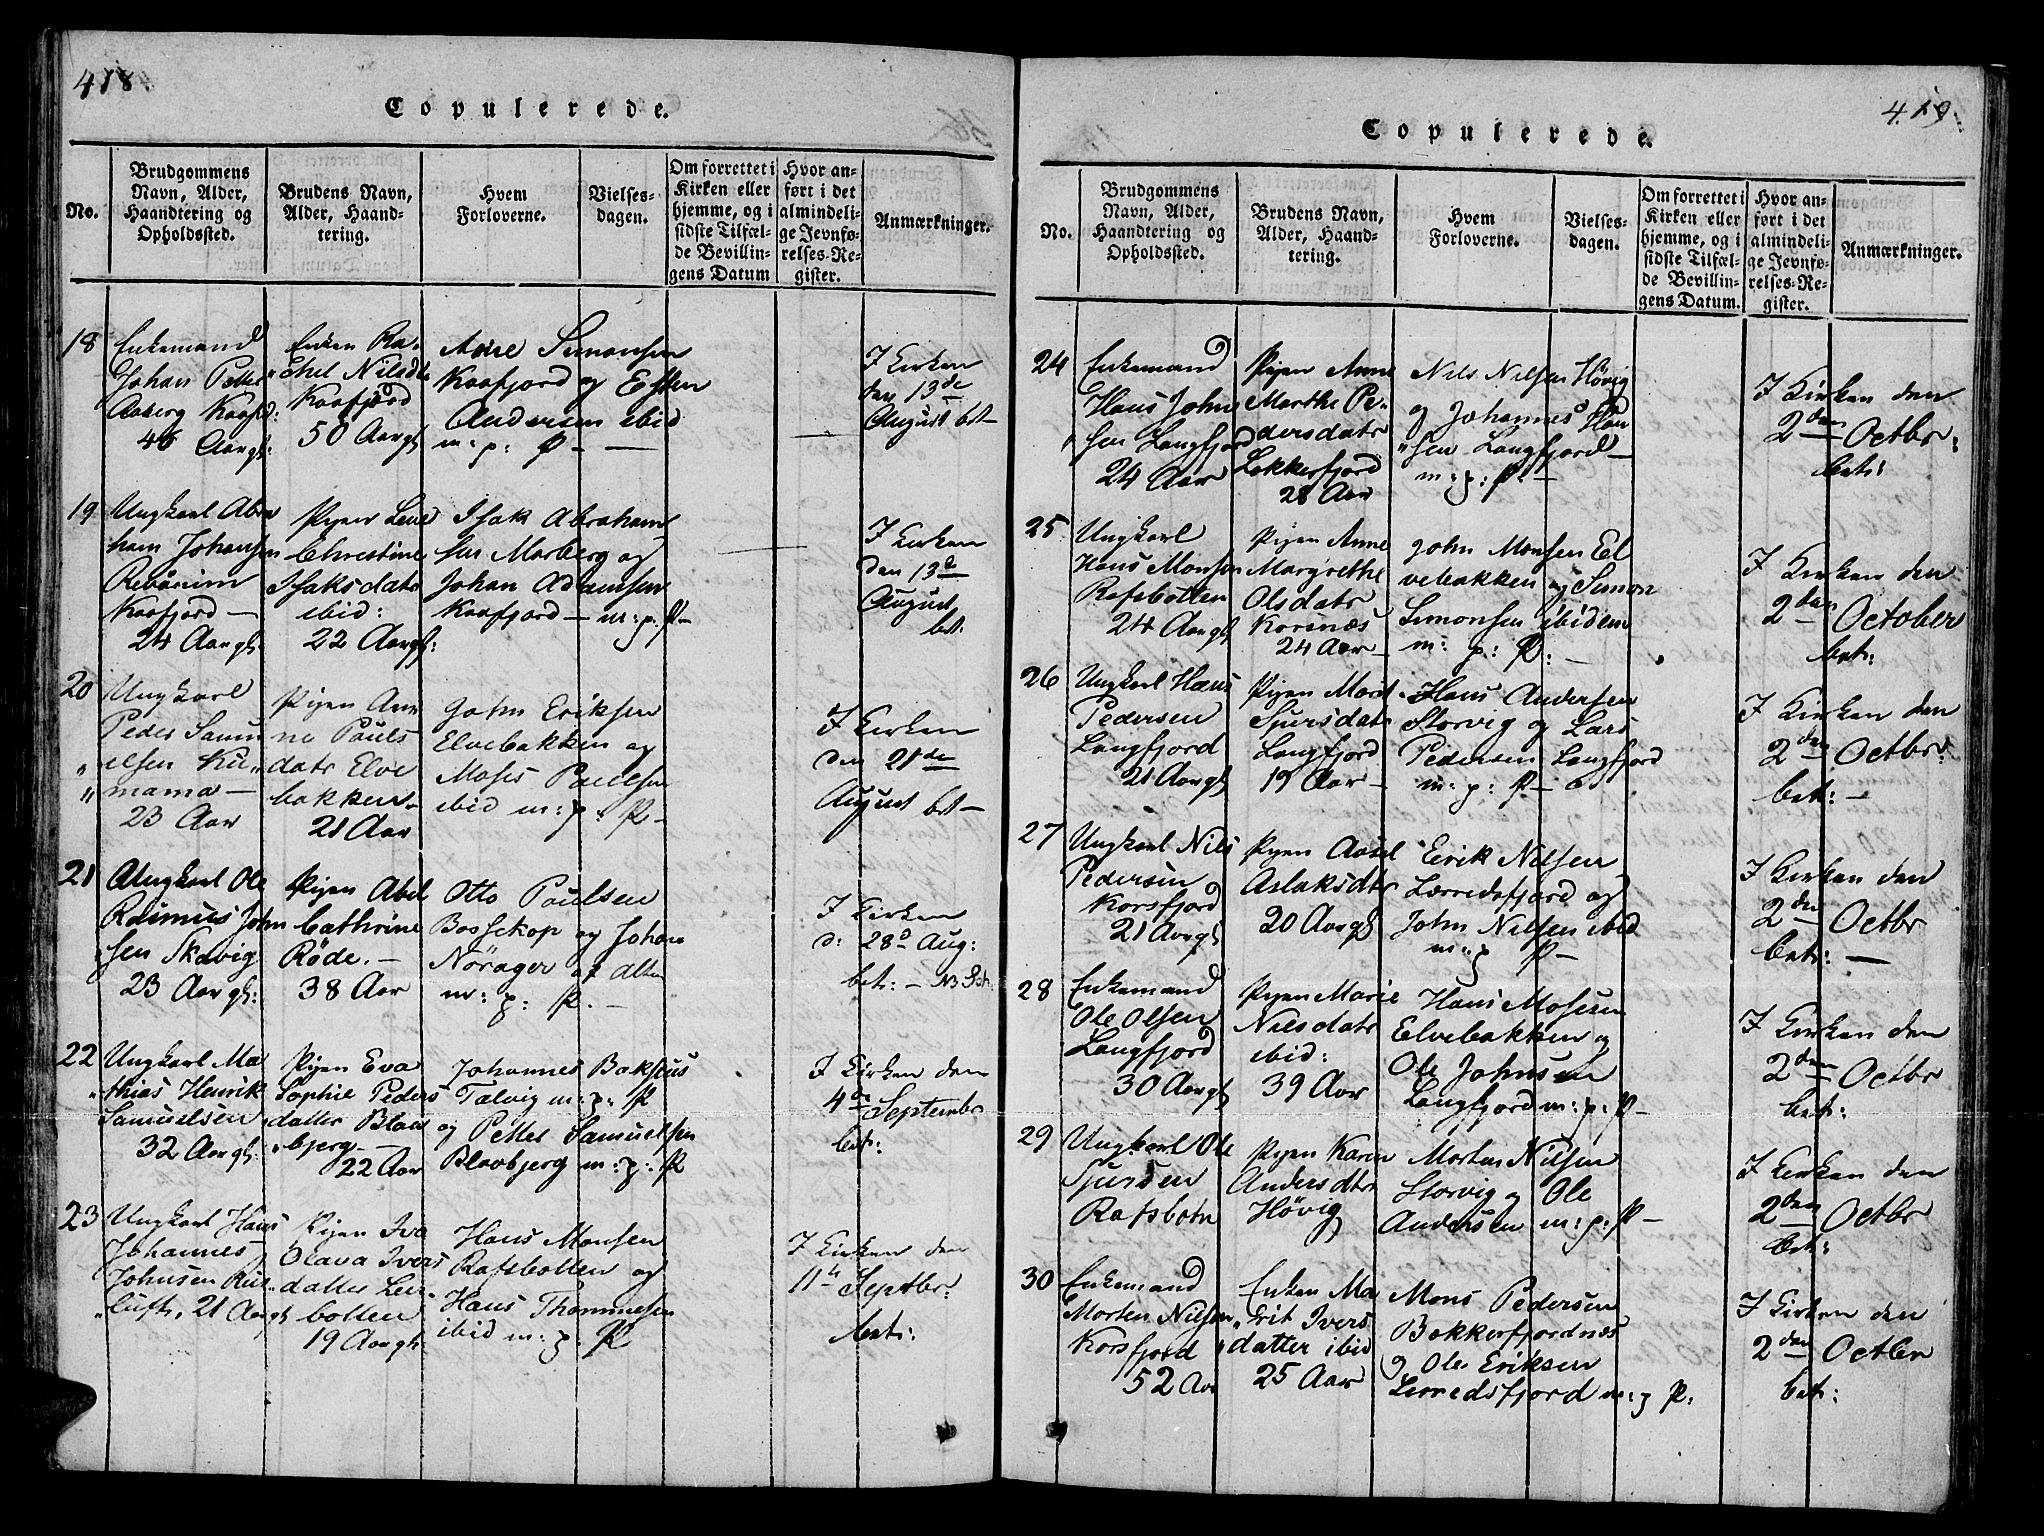 418.
Copulerede.
No.
Brudgommens
Navn, Alder,
Haandtering og
Opholdssted.
Brudens Navn,
Alder, Haand-
tering.
Hvem
Forloverne.
Vielses-
dagen.
Om forrettet i
Kirken eller
hjemme, og i
sidste Tilfæl-
de Bevillin-
gens Datum
Hvor an-
ført i det
almindeli-
ge Jevnfø-
relses-Re-
gister.
Anmærkninger.
18
Enkemand
Johan Petter
Aaberg Kaafd:
46 Aargl:
Enken Ra-
chel Nilsdtr
Kaafjord
50 Aargl
Arne Simonsen
Kaafjord og Esten
Andersen ibid
m: p: P —
I Kirken
den 13de
August bet—
19
Ungkarl Abra
ham Johansen
Kaafjord —
24 Aargl:
Pigen Lene
Christine
Isaksdatr
ibid:
22 Aargl:
Isak Abraham
sen Marberg og
Johan Adamsen
Kaafjord — m: p: P—
I Kirken
den 13de
August
bet:
20
Ungkarl
Peder Samu
elsen Ku„
„ mama —
23 Aar
Pigen An
ne Pauls
datr Elve
bakken—
21 Aar
John Eriksen
Elvebakken og
Moses Paulsen
ibid m: p: P—
I Kirken
den 21de
August bet—
21
Ungkarl Ole
Rasmus John
sen Skavig
23 Aargl:
Pigen Abel
Cathrine
Röde. —
38 Aar
Otto Paulsen
Bossekop og Johan
Nörager af Alten
m: p: P. —
I Kirken
d: 28d Aug:
bet: —
22
Ungkarl Ma
„thias Henrik
Samuelsen
32 Aargl:
Pigen Eva
Sophie Peders
datter Blaa
„bjerg —
22 Aar
Johannes Baksius
Talvig m: p: P
og Petter Samuelsen
Blaabjerg m: p: P
I Kirken den
4de Septembr
bet:
23
Ungkarl Hans
Johannes
Johnsen Rus„
„luft, 21 Aargl
Pigen Iva
Olava Ivers
datter Leir„
botten
19 Aargl:
Hans Monsen
Rafsbotten og
Hans Thommesen
ibid m: p: P
I Kirken den
11te Septbr:
bet:
419.
Copulerede.
No.
Brudgommens
Navn, Alder,
Haandtering og
Opholdssted.
Brudens Navn,
Alder, Haand-
tering.
Hvem
Forloverne.
Vielses-
dagen.
Om forrettet i
Kirken eller
hjemme, og i
sidste Tilfæl-
de Bevillin-
gens Datum.
Hvor an-
ført i det
almindeli-
ge Jevnfø-
relses-Re-
gister.
Anmærkninger.
24
Enkemand
Hans John
„sen Langfjord
24 Aar
Pigen Anne
Marthe Pe-
dersdatr
Lekkerfjord
28 Aar
Nils Nilsen Hövig
og Johannes Han
„sen Langfjord —
m: p: P. —
I Kirken den
2den Octbr:
bet:
25
Ungkarl
Hans Monsen
Rafsbotten
24 Aargl
Pigen Anne
Margrethe
Olsdatr
Korsnæs
24 Aar —
John Monsen El
vebakken og Simon
Simonsen ibidem
m: p: P: —
I Kirken den
2den October
bet:
26
Ungkarl Hans
Pedersen
Langfjord
21 Aargl
Pigen Marit
Sjursdatr
Langfjord
19 Aar —
Hans Andersen
Storvig og Lars
Pedersen Langfjord
m: p: P —
I Kirken den
2den Octbr:
bet: —
27
Ungkarl Nils
Pedersen
Korsfjord
21 Aargl
Pigen Aasel
Aslaksdtr
20 Aargl
Eirik Nilsen
Lærredsfjord og
John Nilsen ibid
m: p P —
I Kirken den
2den Octbr
bet: —
28
Enkemand
Ole Olsen
Langfjord
30 Aargl
Pigen Marie
Nilsdatr
ibid:
39 Aar
Hans Mosesen
Elvebakken og
Ole Johnsen
Langfjord m: p: P—
I Kirken den
2den Octbr
bet:
29
Ungkarl Ole
Sjursen
Rafsbotn
Pigen Karen
Andersdtr
Hövig
Morten Nilsen
Storvig og Ole
Andersen m: p: P —
I Kirken den
2den Octbr
bet:
30
Enkemand
Morten Nilsen
Korsfjord
52 Aar
Enken Ma
„rit Ivers
datter ibid
25 Aar
Mons Pedersen
Bekkerfjordnæs
og Ole Eriksen
Lerredsfjord m: p P:
I Kirken den
2den Octbr
bet: